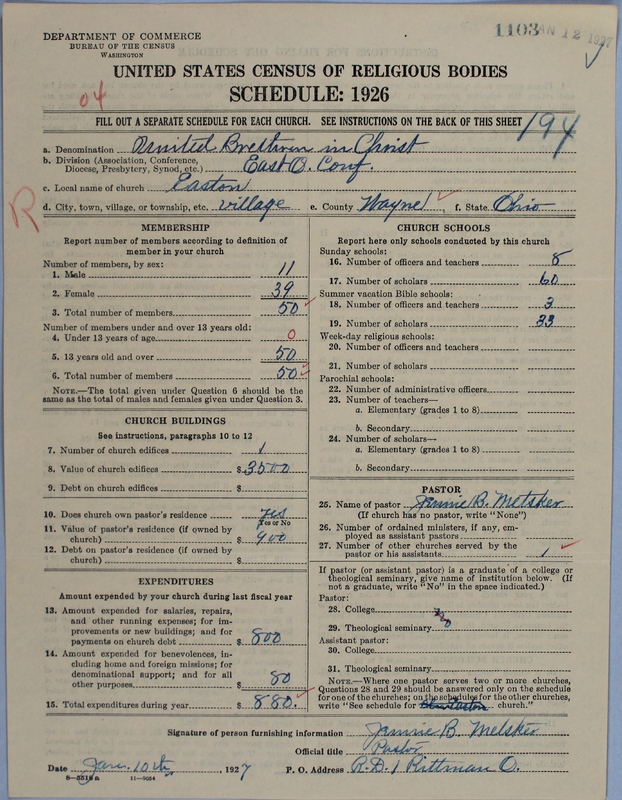 DEPARTMENT OF COMMERCE
BUREAU OF THE CENSUS
WASHINGTON
1103 JAN 12 1927
UNITED STATES CENSUS OF RELIGIOUS BODIES
SCHEDULE: 1926
04
FILL OUT A SEPARATE SCHEDULE FOR EACH CHURCH. SEE INSTRUCTIONS ON THE BACK OF THIS SHEET
194
a. Denomination United Brethren in Christ
b. Division (Association, Conference, Diocese, Presbytery, Synod, etc.) East O. Conf.
c. Local name of church Easton
d. City, town, village, or township, etc. village e. County Wayne f. State Ohio
R
MEMBERSHIP
Report number of members according to definition of
member in your church
Number of members, by sex:
1. Male 11
2. Female 39
3. Total number of members 50
Number of members under and over 13 years old:
4. Under 13 years of age 0
5. 13 years old and over 50
6. Total number of members 50
NOTE.—The total given under Question 6 should be
same as the total of males and females given under Question 3.
CHURCH BUILDINGS
See instructions, paragraphs 10 to 12
7. Number of church edifices 1
8. Value of church edifices $ 3500
9. Debt on church edifices $
10. Does church own pastor's residence yes
Yes or No
11. Value of pastor's residence (if owned by
church) $ 900
12. Debt on pastor's residence (if owned by
church) $
EXPENDITURES
Amount expended by your church during last fiscal year
13. Amount expended for salaries, repairs,
and other running expenses; for im-
provements or new buildings; and for
payments on church debt $ 800
14. Amount expended for benevolences, in-
cluding home and foreign missions; for
denominational support; and for all
other purposes $ 80
15. Total expenditures during year $ 880.
CHURCH SCHOOLS
Report here only schools conducted by this church
Sunday schools:
16. Number of officers and teachers 8
17. Number of scholars 60
Summer vacation Bible schools:
18. Number of officers and teachers 3
19. Number of scholars 33
Week-day religious schools:
20. Number of officers and teachers
21. Number of scholars
Parochial schools:
22. Number of administrative officers
23. Number of teachers—
a. Elementary (grades 1 to 8)
b. Secondary
24. Number of scholars—
a. Elementary (grades 1 to 8)
b. Secondary
PASTOR
25. Name of pastor Jennie B. Metsker
(If church has no pastor, write "None")
26. Number of ordained ministers, if any, em-
ployed as assistant pastors
27. Number of other churches served by the
pastor or his assistants 1
If pastor (or assistant pastor) is a graduate of a college or
theological seminary, give name of institution below. (If
not a graduate, write "No" in the space indicated.)
Pastor:
28. College
29. Theological seminary
Assistant pastor:
30. College
31. Theological seminary
NOTE.—Where one pastor serves two or more churches,
Questions 28 and 29 should be answered only on the schedule
for one of the churches; on the schedules for the other churches,
write "See schedule for church."
Signature of person furnishing information Jennie B. Metsker
Official title Pastor
Date Jan. 10th, 1927 P. O. Address R.D. 1 Rittman O.
8—5518a 11—9084